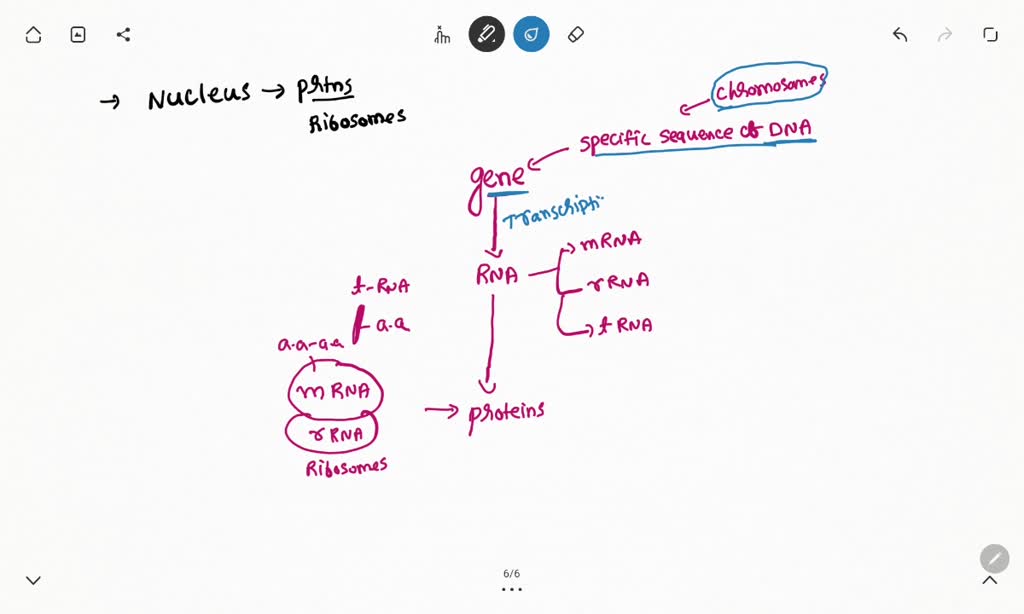 → Nucleus → prtns
Ribosomes
chromosomes
specific sequence of DNA
gene
Transcripti
RNA
mRNA
rRNA
tRNA
t-RNA
a.a
a.a-a.a
mRNA
rRNA
Ribosomes
→ proteins
6/6